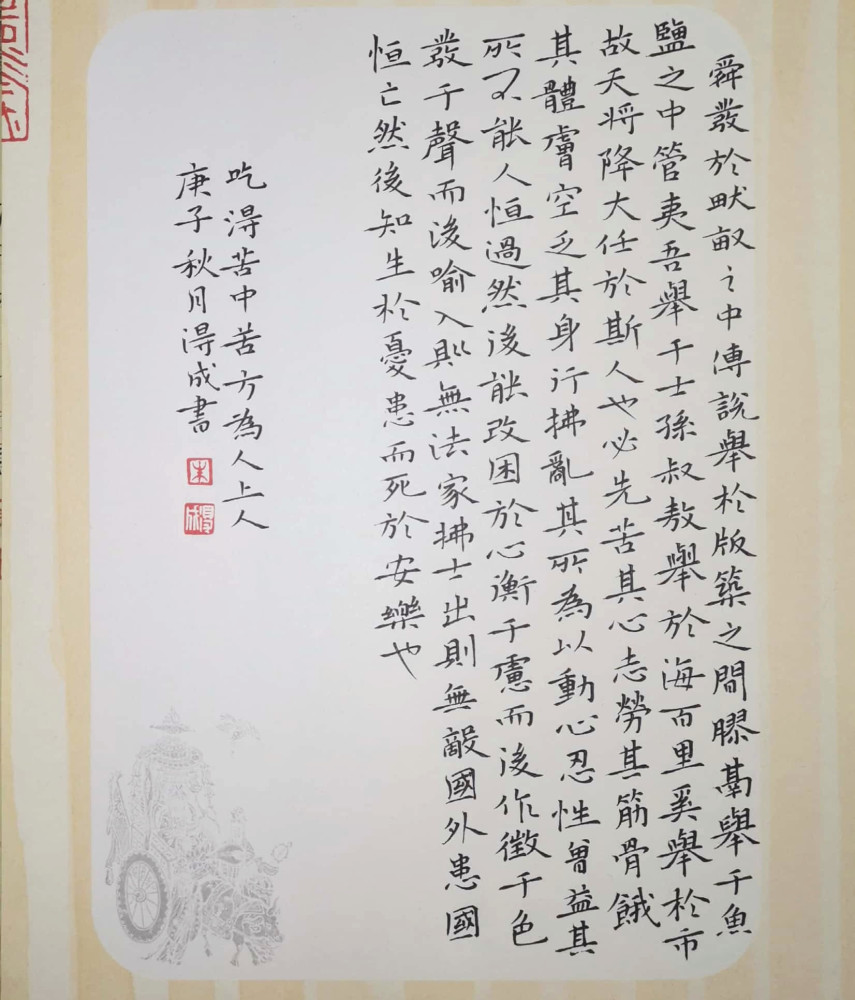 舜發於畎畝之中傅說舉於版築之間膠鬲舉于魚
鹽之中管夷吾舉于士孫叔敖舉於海百里奚舉於市
故天將降大任於斯人也必先苦其心志勞其筋骨餓
其體膚空乏其身行拂亂其所為以動心忍性曾益其
所不能人恒過然後能改困於心衡于慮而後作徵于色
發于聲而後喻入則無法家拂士出則無敵國外患國
恒亡然後知生於憂患而死於安樂也
吃得苦中苦方為人上人
庚子秋月得成書
朱
得成